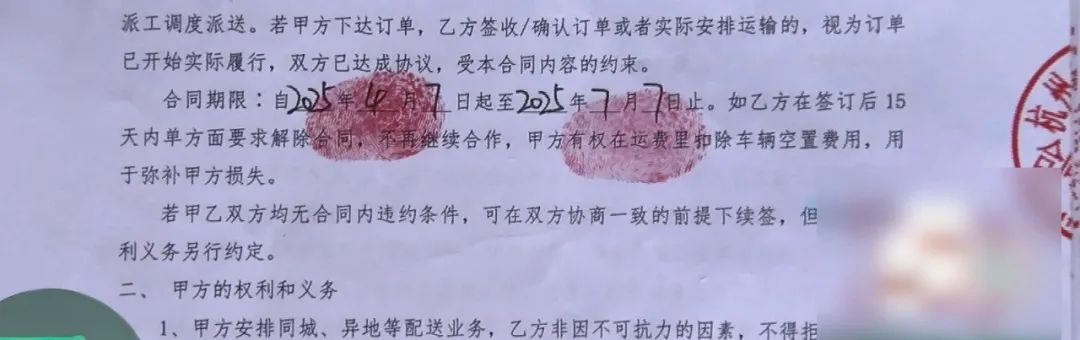 派工调度派送。若甲方下达订单，乙方签收/确认订单或者实际安排运输的，视为订单
已开始实际履行，双方已达成协议，受本合同内容的约束。
合同期限：自2025年4月7日起至2025年7月7日止。如乙方在签订后15
天内单方面要求解除合同，不再继续合作，甲方有权在运费里扣除车辆空置费用，用
于弥补甲方损失。
若甲乙双方均无合同内违约条件，可在双方协商一致的前提下续签，但
利义务另行约定。
二、 甲方的权利和义务
1、甲方安排同城、异地等配送业务，乙方非因不可抗力的因素，不得拒
杭州